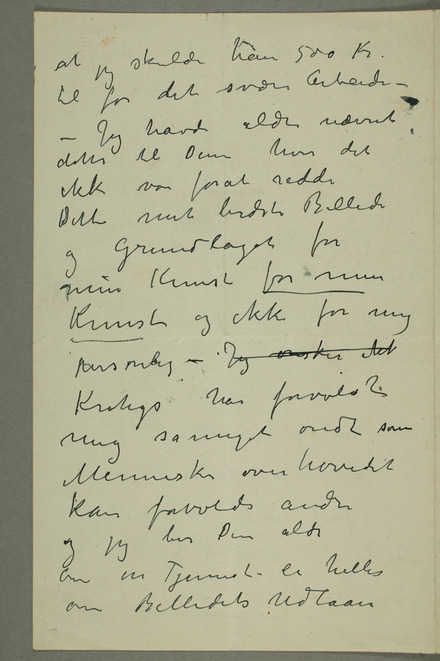 at jeg skulde ham 500 Kr.
til for det svære Arbeide –
– Jeg havde aldri nævnt
dette til Dem hvis det
ikke var forat redde
Dette mit bedste Billede
og Grundlaget for
min Kunst for min
Kunst og ikke for mig
personlig – Jeg ønsker det
Krohgs har forvoldt
mig saameget ondt som
Mennesker overhovedet
kan forvolde andre
og jeg ber Dem aldri
om en Tjeneste – ei heller
om Billedets Udlaan